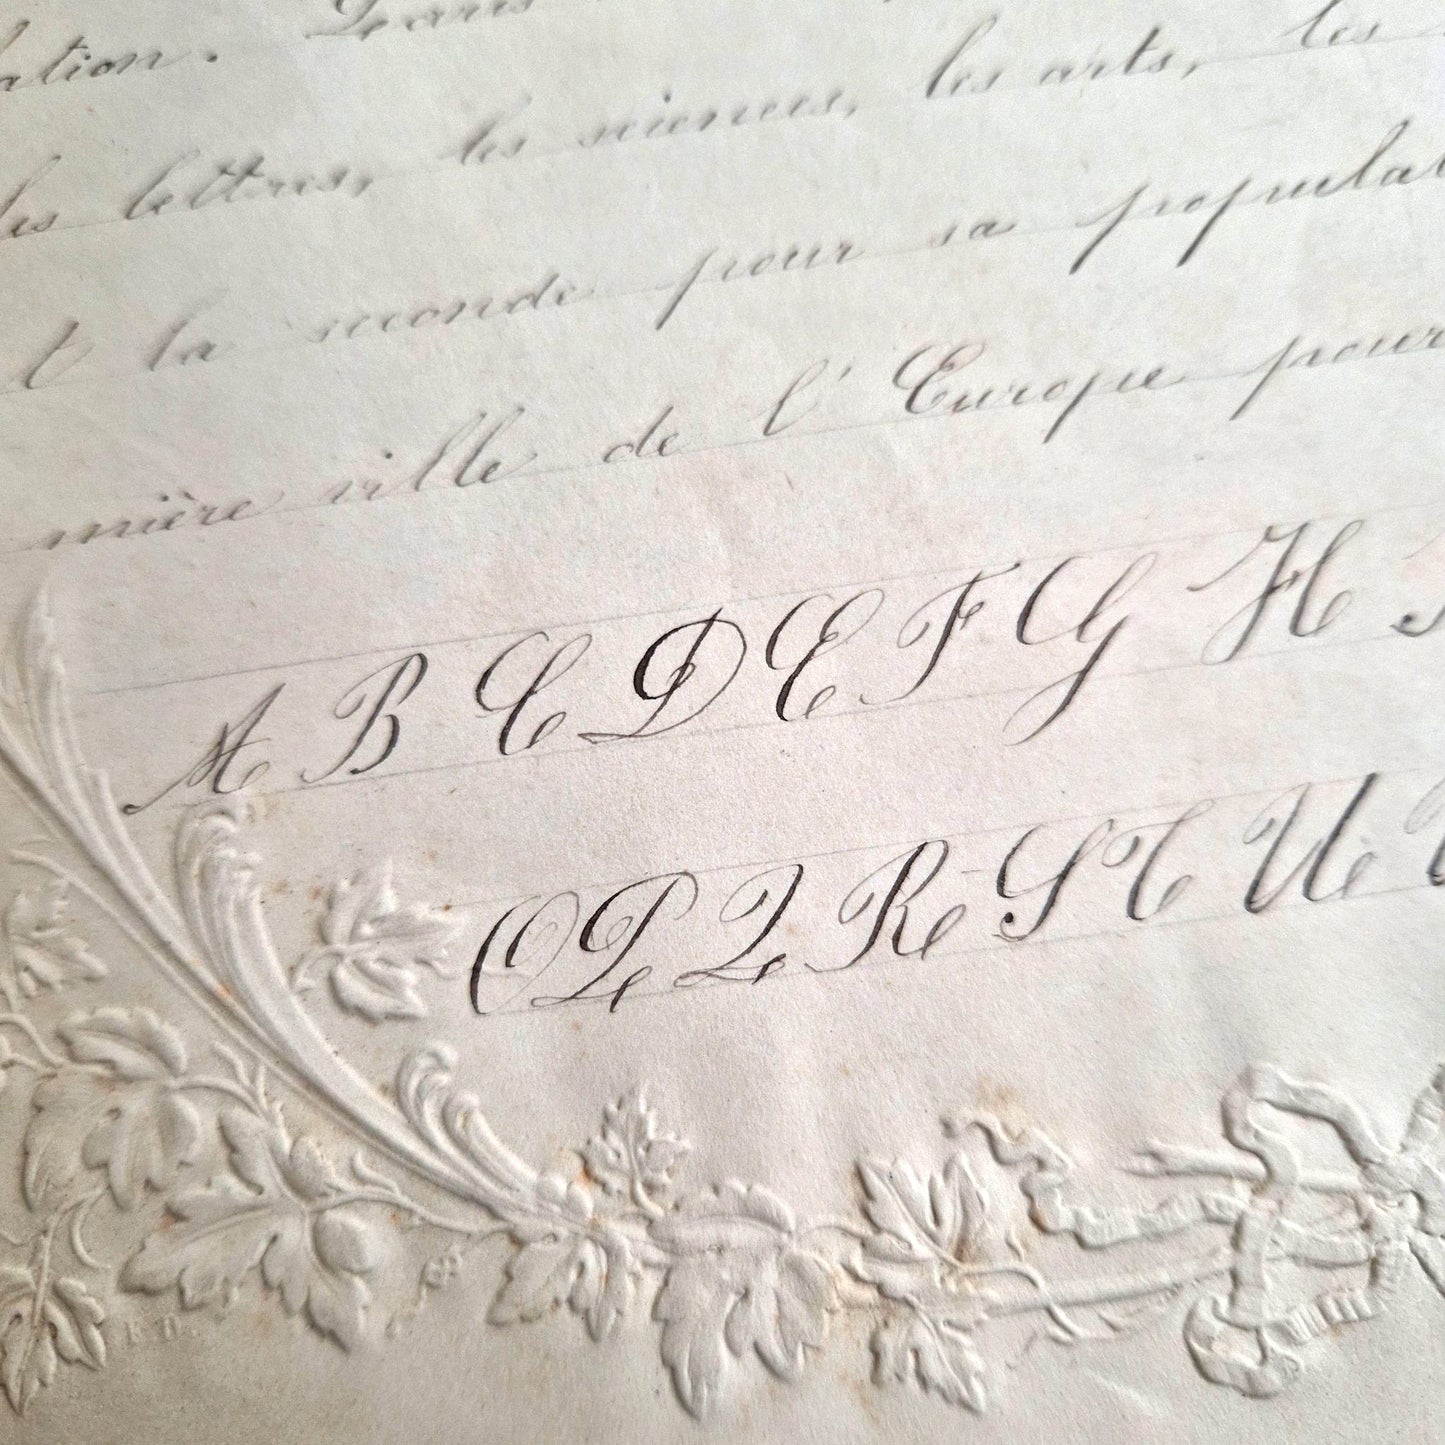 lation. Paris
les lettres, les sciences, les arts, les
t la seconde pour sa populat
mière ville de l'Europe pour
A B C D E F G H
O P Q R S T U